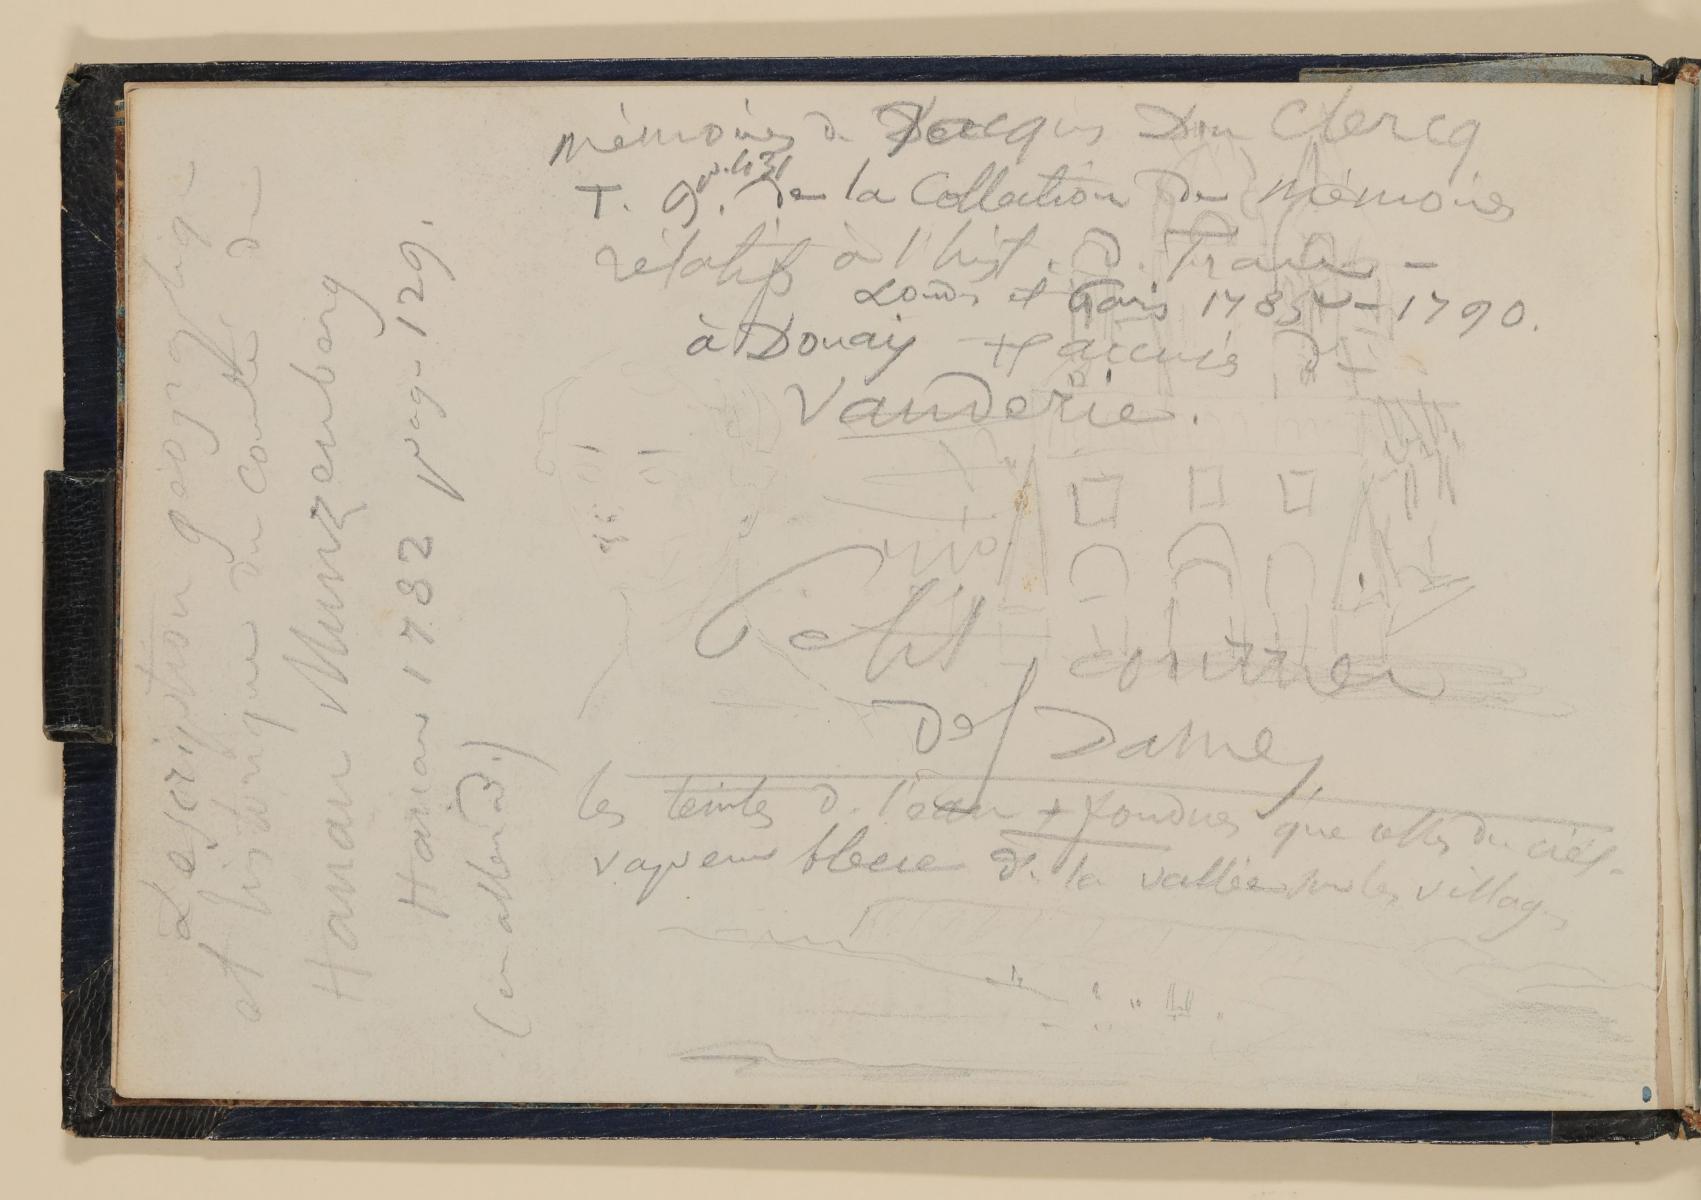 Mémoires de Jacques Du Clercq
T. 9. p. 431 de la Collection des Mémoires
relatifs à l'hist. d. France —
Londres et Paris 1785 — 1790.
à Douay accusés de
Vauderie.
Petit courrier
Des Dames
les teintes d. l'eau + fondues que celles du ciel.
vapeur bleue d. la vallée sur les villages
Description géographique
et historique du Comté de
Hanau Munzenberg
Hanau 1782 pag. 129.
(en allemand.)